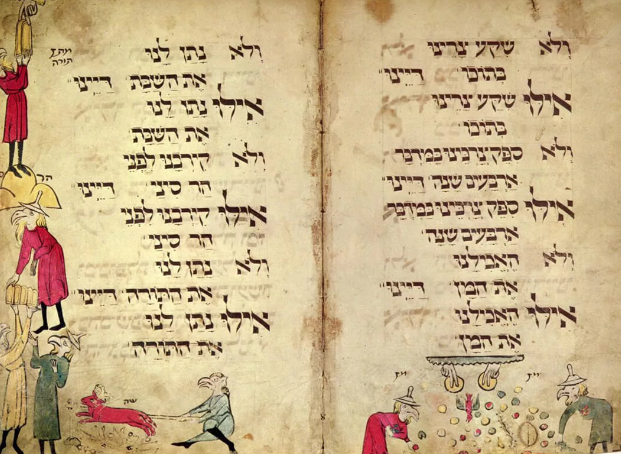 ולא שקע צרינו
בתוכו דיינו
אילו שקע צרינו
בתוכו
ולא ספק צרכינו במדבר
ארבעים שנה דיינו
אילו ספק צרכינו במדבר
ארבעים שנה
ולא האכילנו
את המן דיינו
אילו האכילנו
את המן
מן מן
ולא נתן לנו
את השבת דיינו
אילו נתן לנו
את השבת
ולא קירבנו לפני
הר סיני דיינו
אילו קירבנו לפני
הר סיני
ולא נתן לנו
את התורה דיינו
אילו נתן לנו
את התורה
מתן
תורה
הר
שה